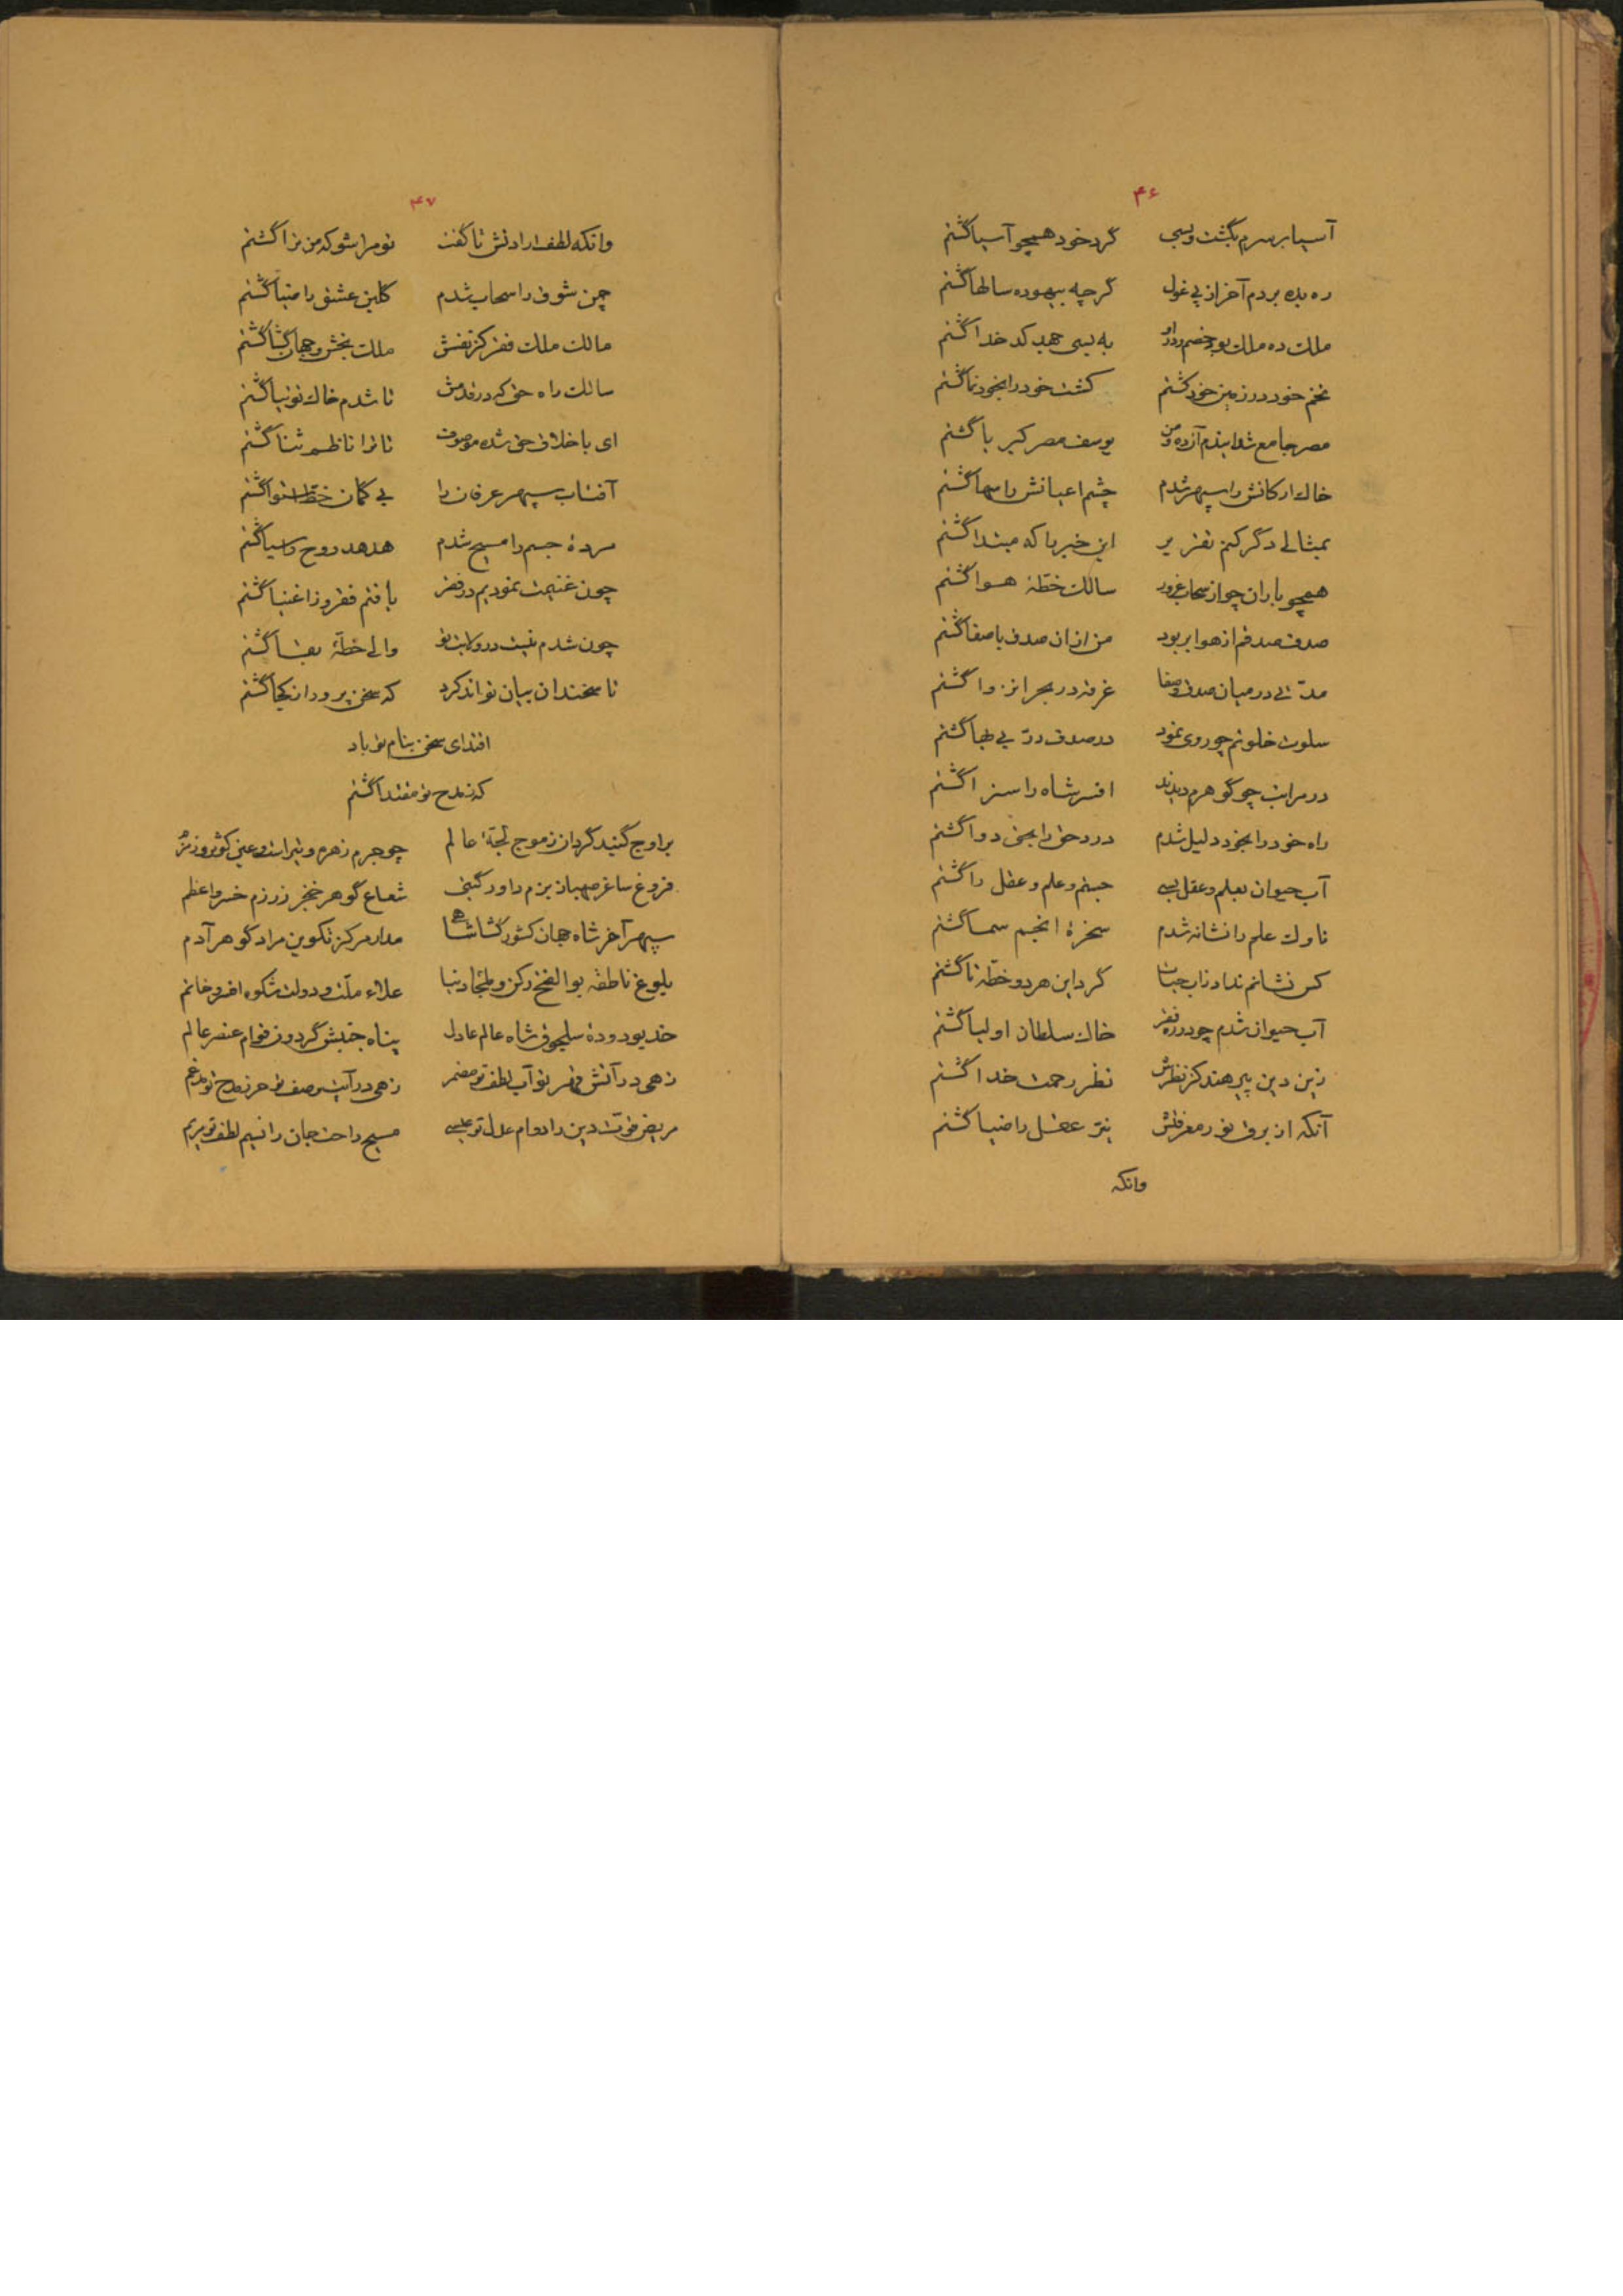 ۴۶
آسیا بر سرم بگشت و بسی گرد خود همچو آسیا گشتم
ره بده بردم آخر از پی غول گرچه بیهوده سالها گشتم
ملک ده ملک بود خصم و در او به بسی جهد کدخدا گشتم
تخم خود در زمین خود کشتم کشت خود را بخود نما گشتم
مصر جامع شد ابتدم آزده و من یوسف مصر کبریا گشتم
خاک ارکانش را سپهر شدم چشم اعیانش را سها گشتم
بمثالی دگر کنم تقریر این خبر را که مبتدا گشتم
همچو باران چو از سحاب غرور سالک خطهٔ هوا گشتم
صدف صدقم از هوا بربود من ازان صدف با صفا گشتم
مدتی در میان صدق و صفا غرقه در بحر انزوا گشتم
سلوت خلوتم چو روی نمود در صدف در بی بها گشتم
در مراتب چو گوهرم دیدند افسر شاه را سزا گشتم
راه خود را بخود دلیل شدم درد حق را بحق دوا گشتم
آب حیوان بعلم و عقل بسی جستم و علم و عقل را گشتم
ناوک علم را نشانه شدم سخرهٔ انجم سما گشتم
کس نشانم نداد زاب حیات گرد این هر دو خطه تا گشتم
آب حیوان شدم چو در ره فقر خاک سلطان اولیا گشتم
زین دین پیر هند کز نظرش نظر رحمت خدا گشتم
آنکه از برق نور معرفتش نیر عقل را ضیا گشتم
وانکه
۴۷
وانکه لطف ارادتش تا گفت تو مرا شو که من ترا گشتم
چمن شوق را سحاب شدم گلبن عشق را صبا گشتم
مالک ملک فقر کز نفسش ملک بخش و جهان گشا گشتم
سالک راه حق که در قدمش تا شدم خاک توتیا گشتم
ای باخلاق حق شده موصوف تا ترا ناظم ثنا گشتم
آفتاب سپهر عرفان را بی گمان خط استوا گشتم
مردهٔ جسم را مسیح شدم هدهد روح را سبا گشتم
چون غنیمت نمودیم در فقر یافتم فقر و زاغنیا گشتم
چون شدم نیست در ولایت تو والی خطهٔ بقا گشتم
تا سخندان بیان تواند کرد که سخن پرور از کجا گشتم
اقتدای سخن بنام تو باد
که ز مدح تو مقتدا گشتم
بر اوج گنبد گردان ز موج لجهٔ عالم چو جرم زهره و تیر است و عین کوثر و زمزم
فروغ ساغر صهبا ز بزم داور گیتی شعاع گوهر خنجر ز رزم خسرو اعظم
سپهر آخر شاه جهان کشور گشا شاهی مدار مرکز تکوین مراد گوهر آدم
بلوغ ناطقه بوالفتح رکن و ملجا دنیا علاء ملت و دولت شکوه افسر و خاتم
خدیو دودهٔ سلجوق شاه عالم عادل پناه جنبش گردون قوام عنصر عالم
زهی در آتش قهر تو آب لطف تو مضمر زهی در آیت وصف تو حرز مدح تو مدغم
مریض قوت دین را دوام عدل تو عیسی مسیح راحت جان را نسیم لطف تو مریم